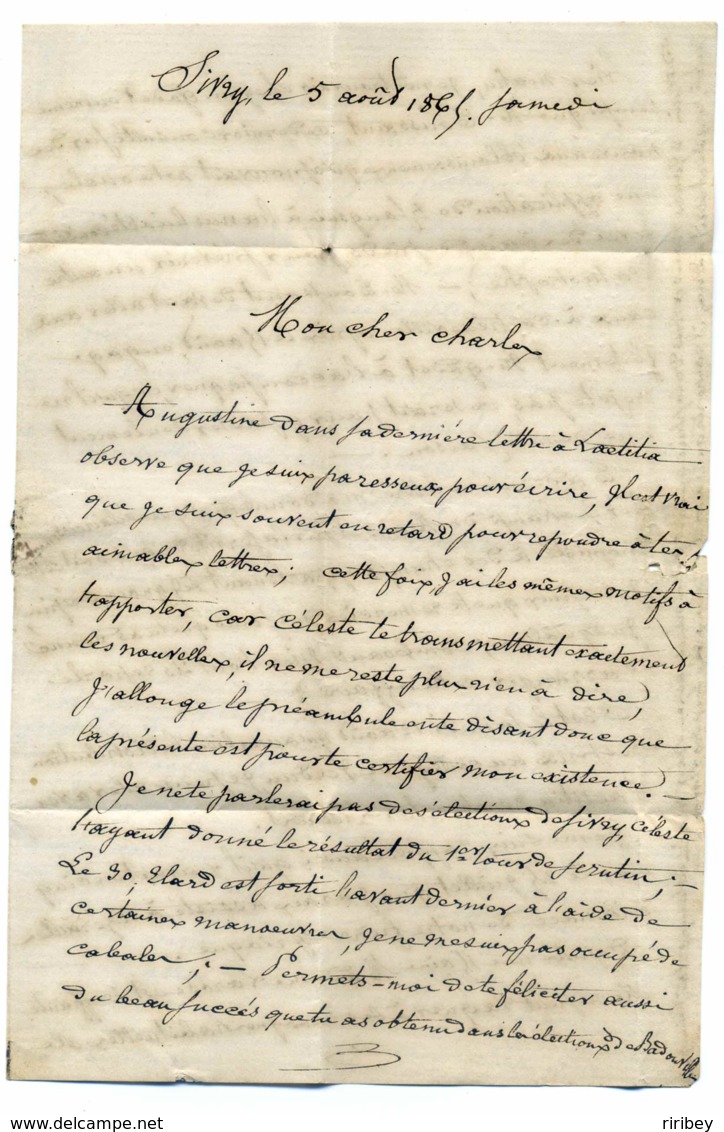 Sivry, le 5 août 1865. Samedi
Mon cher Charles
Augustine dans sa dernière lettre à Laetitia
observe que je suis paresseux pour écrire, Il est vrai
que je suis souvent en retard pour repondre à tes
aimables lettres; cette fois, j'ai les mêmes motifs à
t'apporter, car Céleste te transmettant exactement
les nouvelles, il ne me reste plus rien à dire,
J'allonge le préambule en te disant donc que
la présente est pour te certifier mon existence. —
Je ne te parlerai pas des élections de Sivry, Céleste
t'ayant donné le résultat du 1er tour de scrutin; —
Le 30, est sorti l'avant dernier à l'aide de
certaines manoeuvres, je ne me suis pas occupé de
cabaler; — Permets-moi de te féliciter aussi
du beau succés que tu as obtenu dans les élections de
riribey